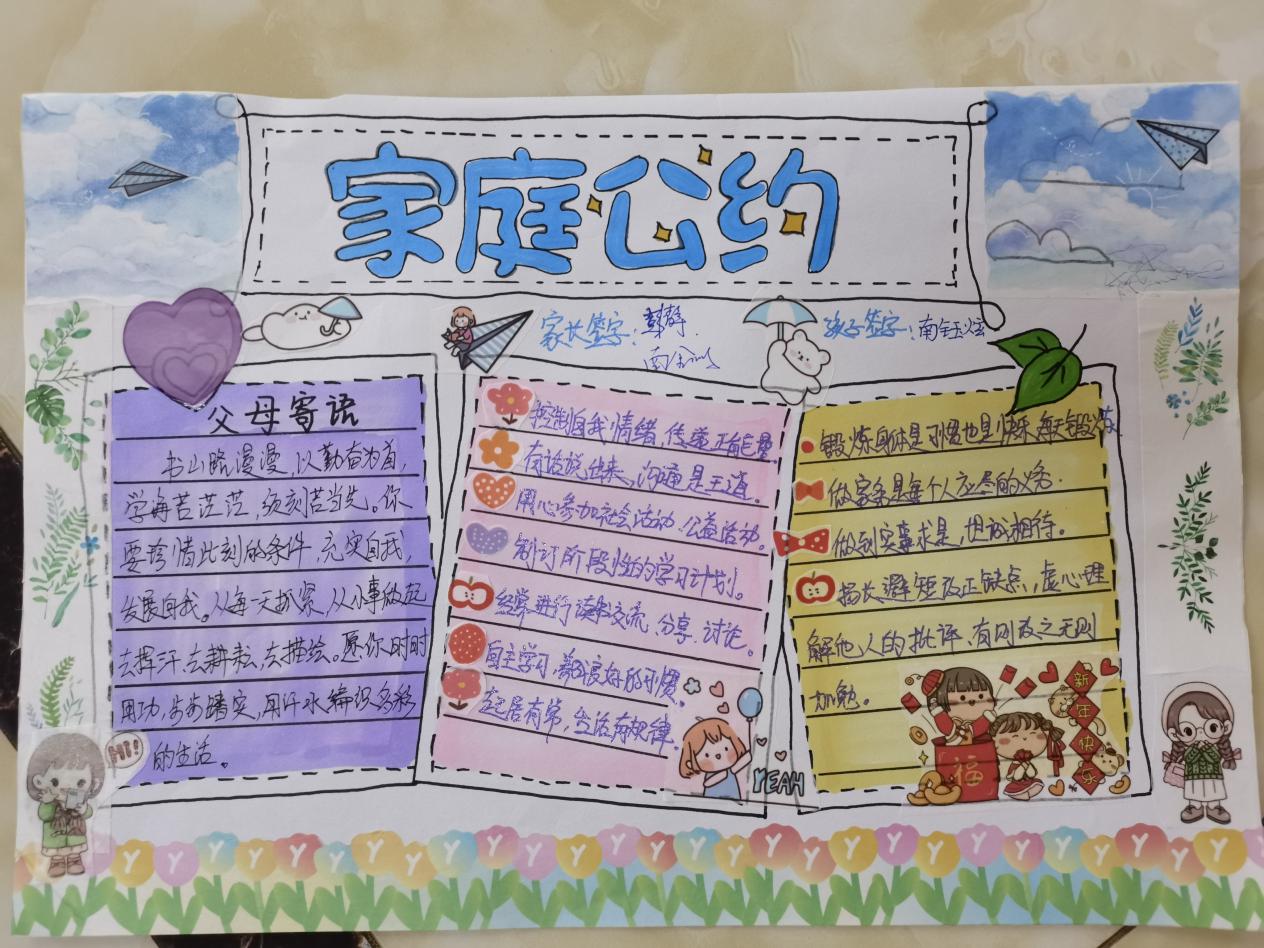 家庭公约
家长签字:
孩子签字:南钰炫
父母寄语
书山路漫漫,以勤奋为首,
学海苦茫茫,须刻苦当先。你
要珍惜此刻的条件,充实自我,
发展自我。从每一天抓紧,从小事做起
去挥汗,去耕耘,去描绘。愿你时时
用功,步步踏实,用汗水编织多彩
的生活。
HI!
控制自我情绪,传递正能量
有话说出来,沟通是王道。
用心参加社会活动、公益活动。
制订阶段性的学习计划。
经常进行读书交流、分享、讨论。
自主学习,养良好的习惯
起居有常,生活有规律。
YEAH
锻炼身体是习惯也是快乐,每天锻炼
做家务是每个人应尽的义务.
做到实事求是,坦诚相待。
扬长避短改正缺点,虚心理
解他人的批评、有则改之无则
加勉。
新年快乐
福
Y Y Y Y Y Y Y Y Y Y Y Y Y Y Y Y Y Y